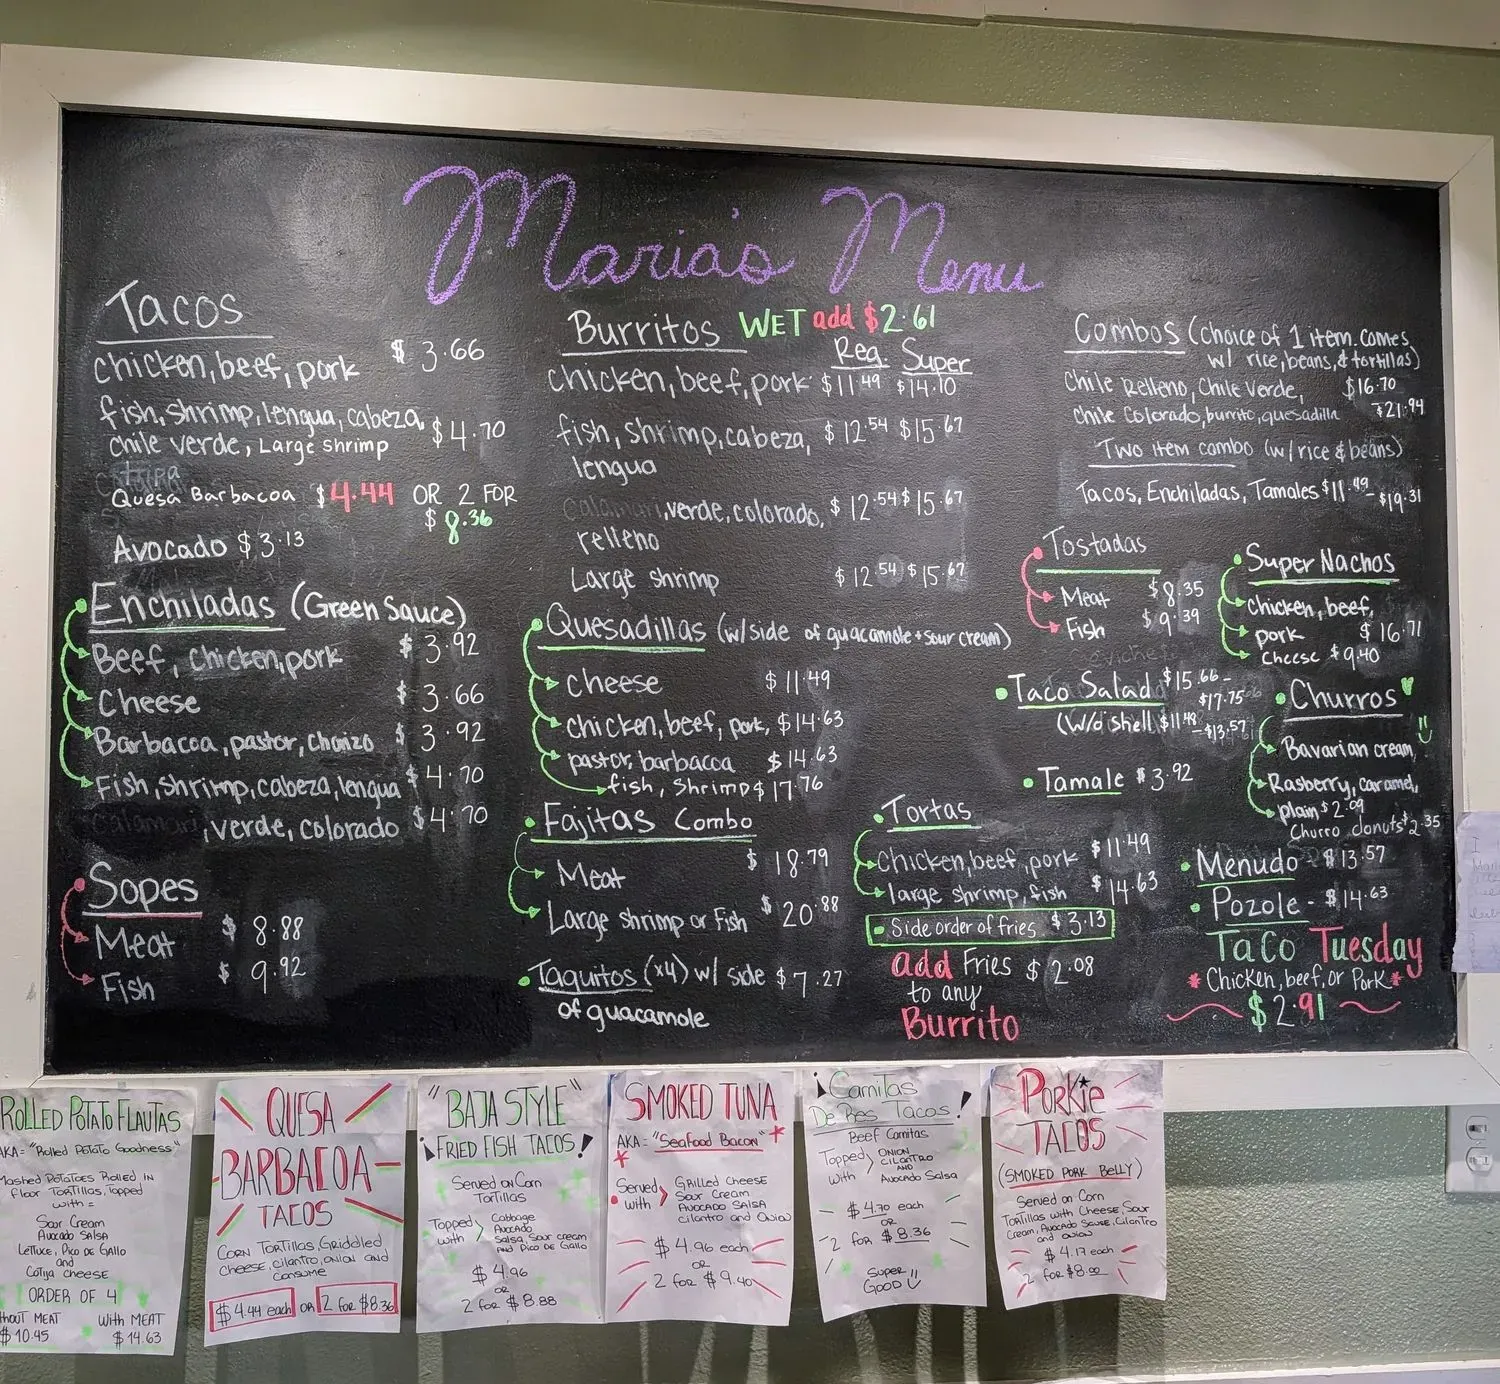 Maria's Menu
Tacos
chicken, beef, pork $3.66
fish, shrimp, lengua, cabeza, $4.70
chile verde, Large shrimp
Quesa Barbacoa $4.44 OR 2 FOR
$8.36
Avocado $3.13
Enchiladas (Green Sauce)
Beef, chicken, pork $3.92
Cheese $3.66
Barbacoa, pastor, chorizo $3.92
Fish, shrimp, cabeza, lengua $4.70
calamari, verde, colorado $4.70
Sopes
Meat $8.88
Fish $9.92
Burritos WET add $2.61
Reg. Super
chicken, beef, pork $11.49 $14.10
fish, shrimp, cabeza, $12.54 $15.67
lengua
calamari, verde, colorado, $12.54 $15.67
relleno
Large shrimp $12.54 $15.67
Quesadillas (w/side of guacamole + sour cream)
cheese $11.49
chicken, beef, pork, $14.63
pastor, barbacoa $14.63
fish, shrimp $17.76
Fajitas Combo
Meat $18.79
Large shrimp or Fish $20.88
Taquitos (x4) w/ side $7.27
of guacamole
Combos (choice of 1 item. comes
w/ rice, beans, & tortillas)
Chile Relleno, Chile Verde, $16.70
Chile Colorado, burrito, quesadilla $21.94
Two item combo (w/rice & beans)
Tacos, Enchiladas, Tamales $11.49-$19.31
Tostadas
Meat $8.35
Fish $9.39
Super Nachos
chicken, beef,
pork $16.71
cheese $9.40
Taco Salad $15.66-
$17.75
(w/o shell $11.48
-$13.57
Tamale $3.92
Churros
Bavarian cream,
Rasberry, caramel,
plain $2.09
Churro donuts $2.35
Tortas
chicken, beef, pork $11.49
large shrimp, fish $14.63
Side order of fries $3.13
add Fries $2.08
to any
Burrito
Menudo - $13.57
Pozole - $14.63
Taco Tuesday
*Chicken, beef, or Pork*
$2.91
ROLLED POTATO FLAUTAS
AKA= "Rolled Potato Goodness"
Mashed Potatoes Rolled in
flour Tortillas, Topped
with =
Sour Cream
Avocado Salsa
Lettuce, Pico de Gallo
and
Cotija Cheese
ORDER OF 4
thout MEAT With MEAT
$10.45 $14.63
QUESA
BARBACOA
TACOS
Corn Tortillas, Griddled
cheese, cilantro, onion and
consume
$4.44 each OR 2 for $8.36
"BAJA STYLE"
¡FRIED FISH TACOS!
Served on Corn
Tortillas
Topped with > Cabbage
Avocado
Salsa, Sour cream
and Pico de Gallo
$4.96
OR
2 for $8.88
SMOKED TUNA
AKA= "Seafood Bacon"
Served with > Grilled Cheese
Sour Cream
Avocado Salsa
cilantro and Onion
$4.96 each
OR
2 for $9.40
¡Carnitas
De Res Tacos!
Beef Carnitas
Topped with > Onion
Cilantro
and
Avocado Salsa
$4.70 each
OR
2 for $8.36
Super
GOOD
PORKIE
TACOS
(SMOKED PORK BELLY)
Served on Corn
Tortillas with Cheese, Sour
Cream, Avocado Sause, Cilantro
and onion
$4.17 each
OR
2 for $8.00